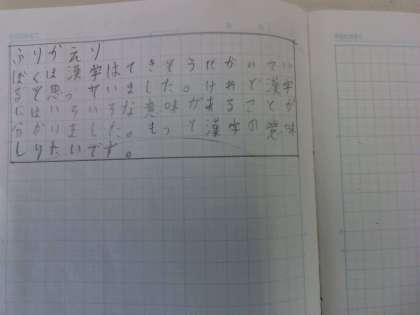 ふりかえり
ぼくは漢字はてきとうにかいてい
ると思っていました。けれど漢字
にはいろいろな意味があることが
分かりました。もっと漢字の意味
しりたいです。